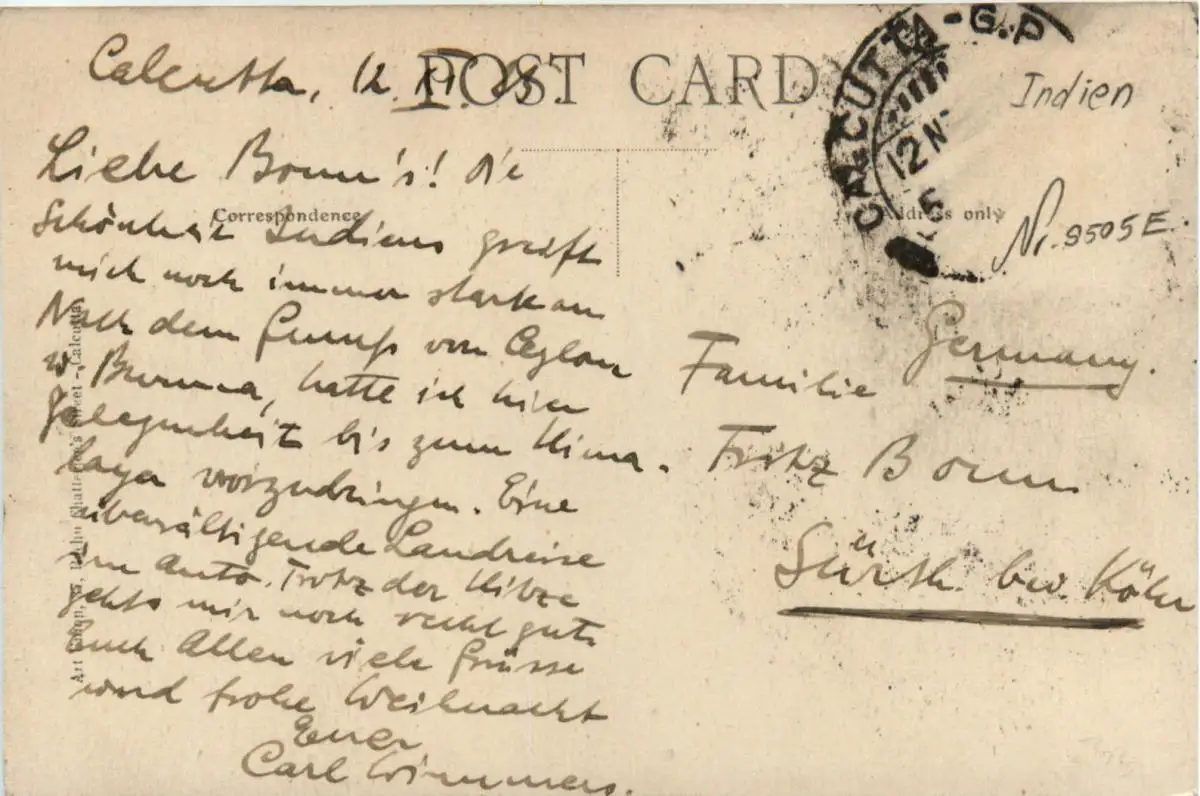 POST CARD
Calcutta, 12. XI.
Liebe Bonn's! Die
Correspondence
Schönheit Indiens greift
mich noch immer stark an
Nach dem Genuß von Ceylon
u. Burma, hatte ich hier
Gelegenheit bis zum Hima-
laya vorzudringen. Eine
überwältigende Landreise
im Auto. Trotz der Hitze
gehts mir noch recht gut.
Euch Allen viele Grüsse
und frohe Weihnacht
Euer
Carl Wimmers.
CALCUTTA-G.P
12 N
Indien
Address only
Nr. 9505 E.
Germany.
Familie
Fritz Bonn
Sürth bei Köln